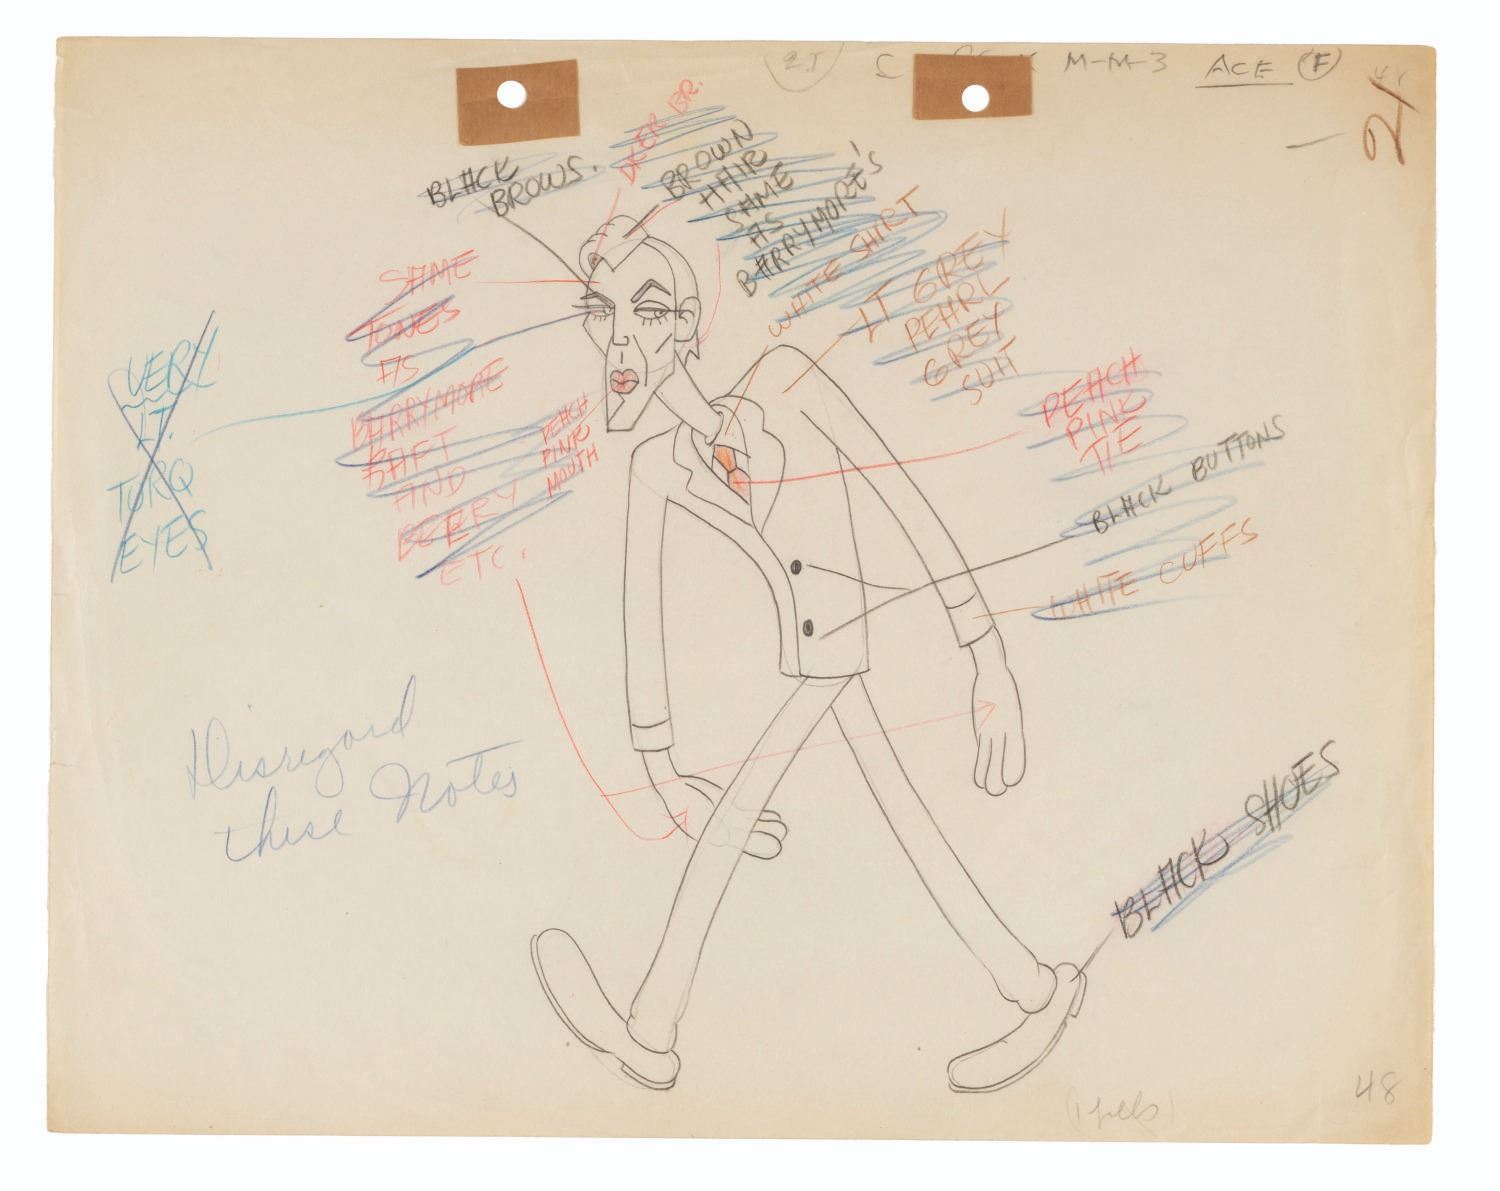 M-M-3 ACE F
21
DKER BR.
BLACK
BROWS.
BROWN
HAIR
SAME
AS
BARRYMORE'S
WHITE SHIRT
LT GREY
PEARL
GREY
SUIT
SAME
TONES
AS
BARRYMORE
BAFT
AND
BEERY
ETC.
PEACH
PINK
MOUTH
VERY
LT.
TORQ
EYES
PEACH
PINK
TIE
BLACK BUTTONS
WHITE CUFFS
Disregard
these Notes
BLACK SHOES
48